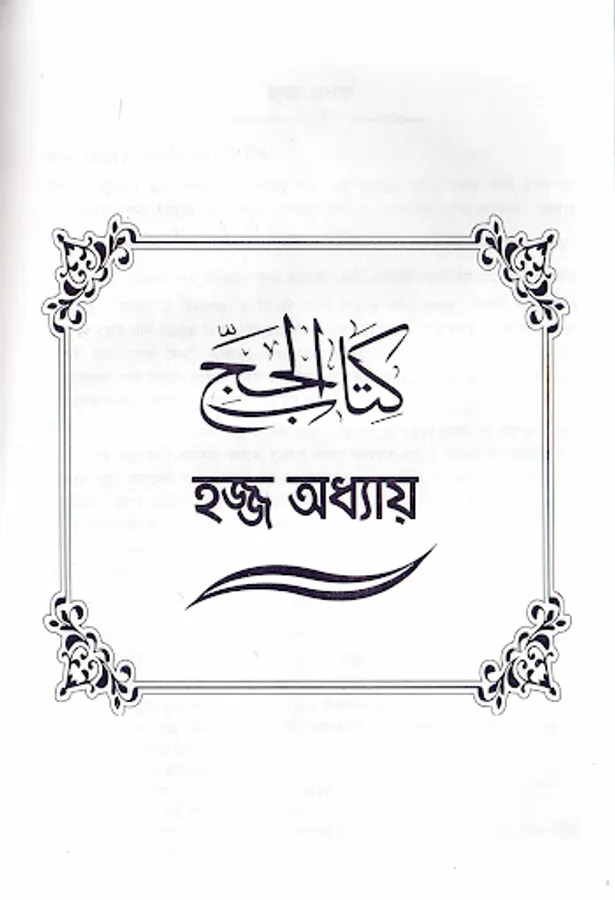 كتاب الحجّ
হজ্জ অধ্যায়